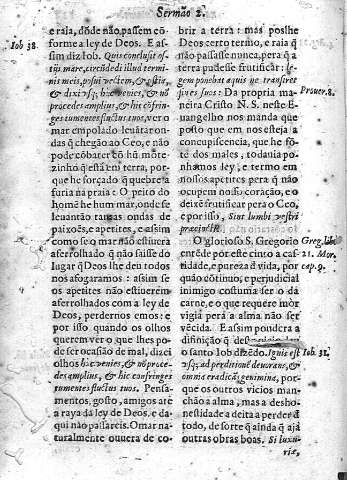 Sermão 2.
e raia, dõde não passem cõ-
forme a ley de Deos. E as-
Iob 38.
sim diz Iob. Quis conclusit os-
tijs mare, circũdedi illud termi-
nis meis, posui vectem, & ostia,
& dixi vsq; huc venies, & nõ
procedes amplius, & hic cõfrin-
ges tumentes fluctus tuos, ver o
mar empolado leuãtar on-
das q̃ chegão ao Ceo, e não
pode cõbater cõ hũ mõte-
zinho q̃ está em terra, por-
que he forçado q̃ quebre a
furia na praia: O peito do
homẽ he hum mar, onde se
leuantão tantas ondas de
paixoẽs, e apetites, e assim
como se o mar não estiuera
aferrolhado q̃ não saisse do
lugar q̃ Deos lhe deu todos
nos afogaramos: assim se
os apetites não estiuerẽ
aferrolhados com a ley de
Deos, perdernos emos: e
por isso quando os olhos
querem ver o que lhes po-
de ser ocasão de mal, dizei
olhos huc venies, & nõ proce-
des amplius, & hic confringes
tumentes fluctus tuos. Pensa-
mentos, gosto, amigos até
a raya da ley de Deos, e da-
qui não passareis. O mar na-
turalmente ouuera de co-
brir a terra: mas poslhe
Deos certo termo, e raia q̃
não passasse nunca, pera q̃ a
terra pudesse frutificar: le-
gem ponebat aquis ne transirẽt
fines suos: Da propria ma-
Prouer. 8.
neira Cristo N. S. neste E-
uangelho nos manda que
posto que em nos esteja a
concupiscencia, que he fõ-
te dos males, todauia po-
nhamos ley, e termo em
nossos apetites pera q̃ não
ocupem nosso coração, e o
deixẽ frutificar pera o Ceo,
e por isso, Sint lumbi vestri
præcincti.
O glorioso S. Gregorio
Greg. lib.
entẽde por este cinto a cas-
21. Mor.
tidade, e pureza d vida, por
cap. 9.
quãto cõtino, e perjudicial
inimigo costuma ser o da
carne, e o que requere mòr
vigia perà a alma não ser
vẽcida. E assim poudera a
difinição q̃
o santo Iob dizẽdo. Ignis est
Iob. 31.
vsq; ad perditione deuorans, &
omnia eradicãs genimina, por-
que os outros vicios man-
chão a alma, mas a desho-
nestidade a deita a perder d
todo, de sorte q̃ ainda q̃ aja
outras obras boas. Si luxu-
riæ,